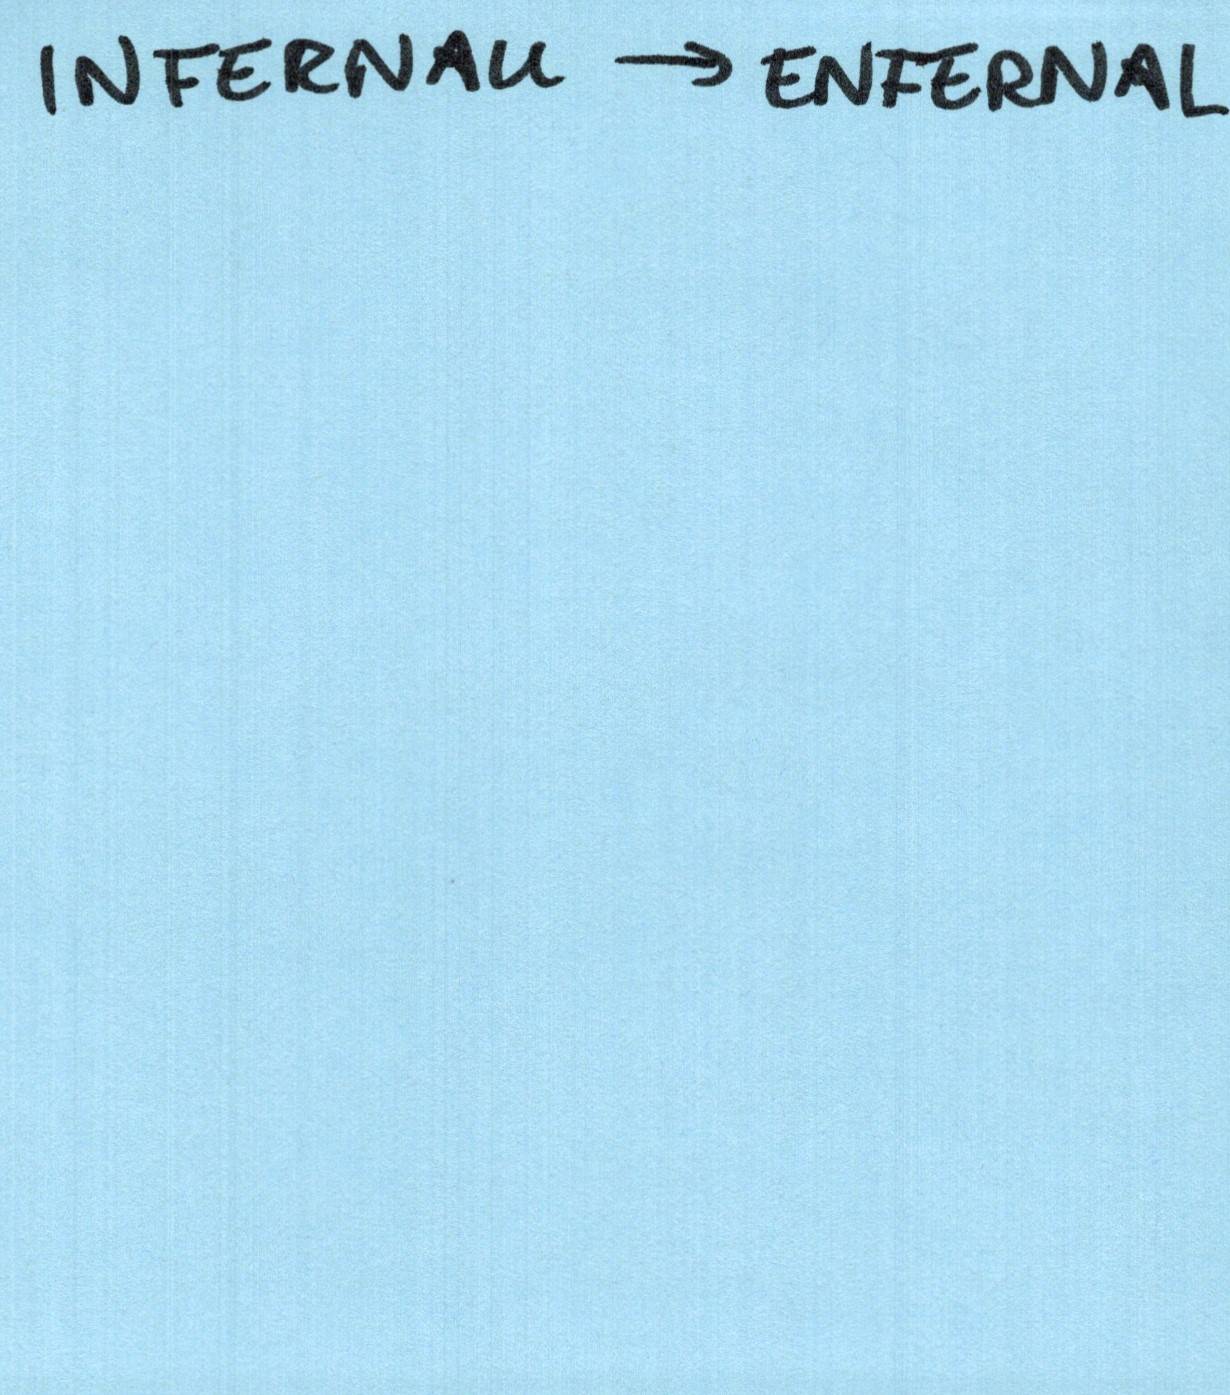 INFERNAU → ENFERNAL